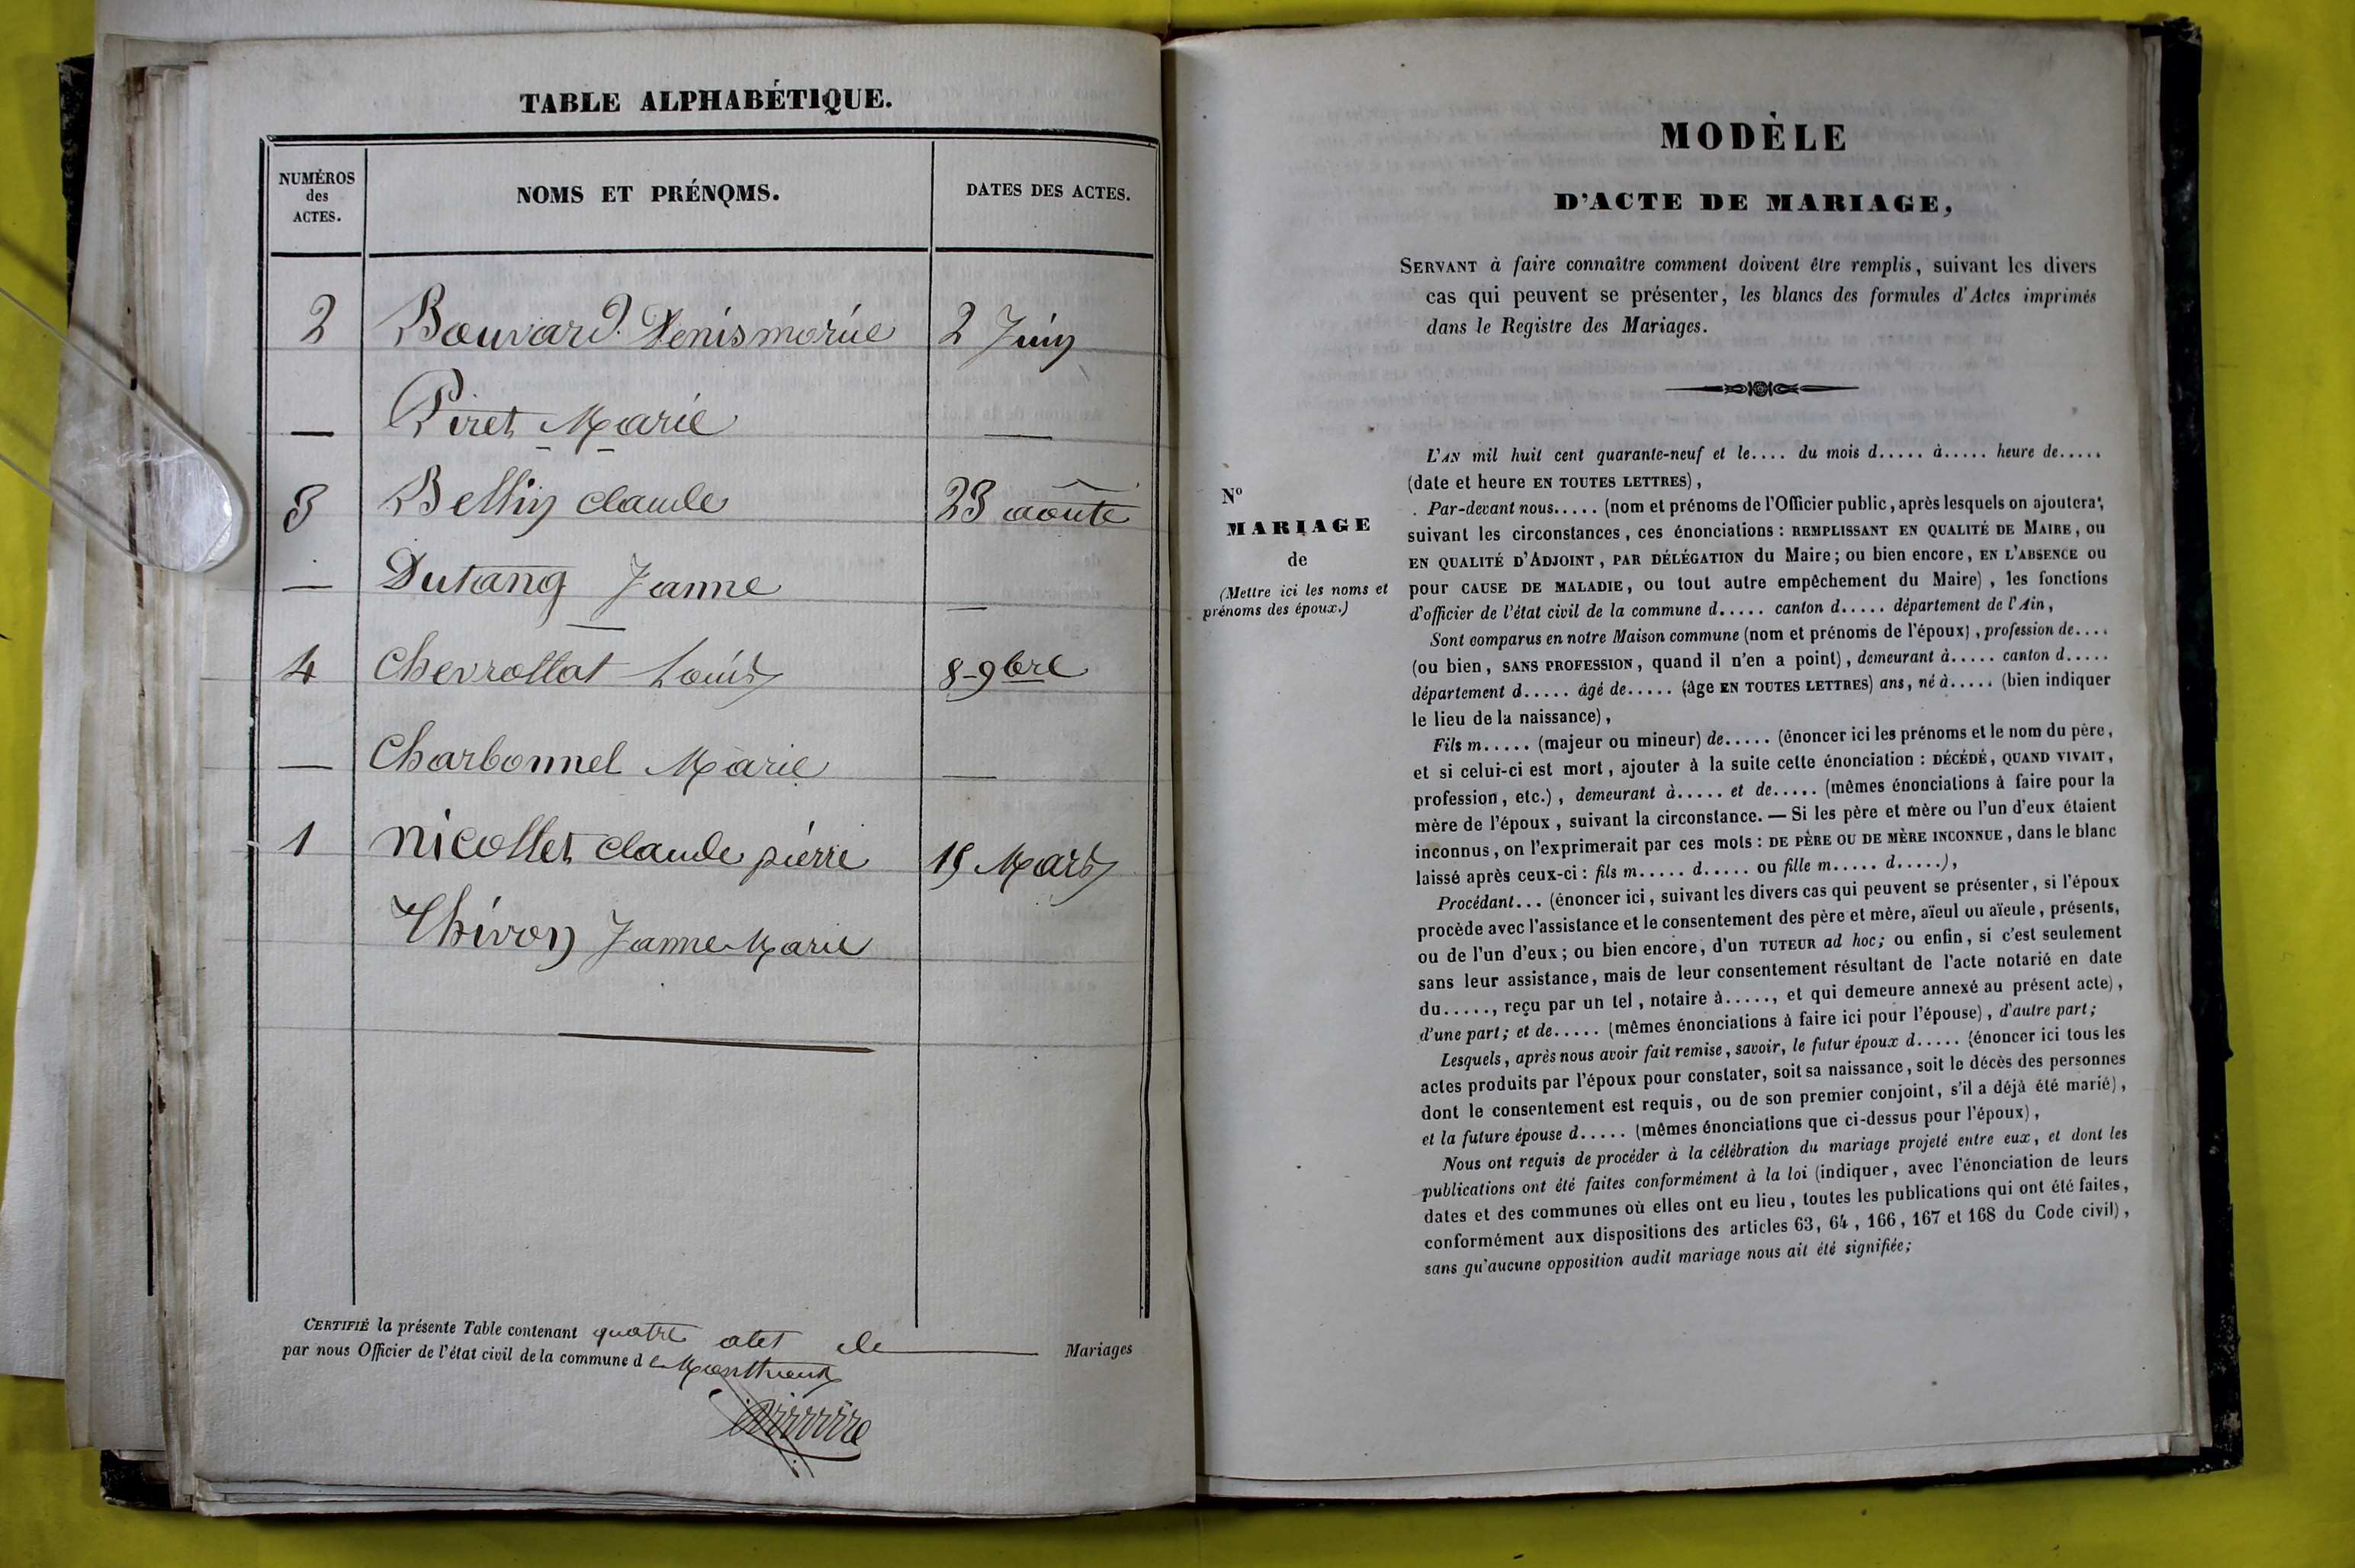 TABLE ALPHABÉTIQUE.
NUMÉROS des ACTES.
NOMS ET PRÉNOMS.
DATES DES ACTES.
2 Bouvard Denis morice 2 Juin
— Piret Marie —
3 Bellin claude 23 aoûte
— Dutang Janne —
4 Chevrollat Louis 8-9bre
— Charbonnel Marie —
1 Nicollet claude pierre 15 Mars
Thivon Janne Marie
CERTIFIÉ la présente Table contenant quatre atet de Mariages
par nous Officier de l'état civil de la commune d e Monthieux
MODÈLE
D'ACTE DE MARIAGE,
SERVANT à faire connaître comment doivent être remplis, suivant les divers
cas qui peuvent se présenter, les blancs des formules d'Actes imprimés
dans le Registre des Mariages.
N°
MARIAGE
de
(Mettre ici les noms et
prénoms des époux.)
L'AN mil huit cent quarante-neuf et le.... du mois d..... à..... heure de.....
(date et heure EN TOUTES LETTRES),
Par-devant nous..... (nom et prénoms de l'Officier public, après lesquels on ajoutera,
suivant les circonstances, ces énonciations : REMPLISSANT EN QUALITÉ DE MAIRE, ou
EN QUALITÉ D'ADJOINT, PAR DÉLÉGATION du Maire; ou bien encore, EN L'ABSENCE ou
pour CAUSE DE MALADIE, ou tout autre empêchement du Maire), les fonctions
d'officier de l'état civil de la commune d..... canton d..... département de l'Ain,
Sont comparus en notre Maison commune (nom et prénoms de l'époux), profession de....
(ou bien, SANS PROFESSION, quand il n'en a point), demeurant à..... canton d.....
département d..... âgé de..... (âge EN TOUTES LETTRES) ans, né à..... (bien indiquer
le lieu de la naissance),
Fils m..... (majeur ou mineur) de..... (énoncer ici les prénoms et le nom du père,
et si celui-ci est mort, ajouter à la suite cette énonciation : DÉCÉDÉ, QUAND VIVAIT,
profession, etc.), demeurant à..... et de..... (mêmes énonciations à faire pour la
mère de l'époux, suivant la circonstance. — Si les père et mère ou l'un d'eux étaient
inconnus, on l'exprimerait par ces mots : DE PÈRE OU DE MÈRE INCONNUE, dans le blanc
laissé après ceux-ci : fils m..... d..... ou fille m..... d.....),
Procédant... (énoncer ici, suivant les divers cas qui peuvent se présenter, si l'époux
procède avec l'assistance et le consentement des père et mère, aïeul ou aïeule, présents,
ou de l'un d'eux; ou bien encore, d'un TUTEUR ad hoc; ou enfin, si c'est seulement
sans leur assistance, mais de leur consentement résultant de l'acte notarié en date
du....., reçu par un tel, notaire à....., et qui demeure annexé au présent acte),
d'une part; et de..... (mêmes énonciations à faire ici pour l'épouse), d'autre part;
Lesquels, après nous avoir fait remise, savoir, le futur époux d..... (énoncer ici tous les
actes produits par l'époux pour constater, soit sa naissance, soit le décès des personnes
dont le consentement est requis, ou de son premier conjoint, s'il a déjà été marié),
et la future épouse d..... (mêmes énonciations que ci-dessus pour l'époux),
Nous ont requis de procéder à la célébration du mariage projeté entre eux, et dont les
publications ont été faites conformément à la loi (indiquer, avec l'énonciation de leurs
dates et des communes où elles ont eu lieu, toutes les publications qui ont été faites,
conformément aux dispositions des articles 63, 64, 166, 167 et 168 du Code civil),
sans qu'aucune opposition audit mariage nous ait été signifiée;